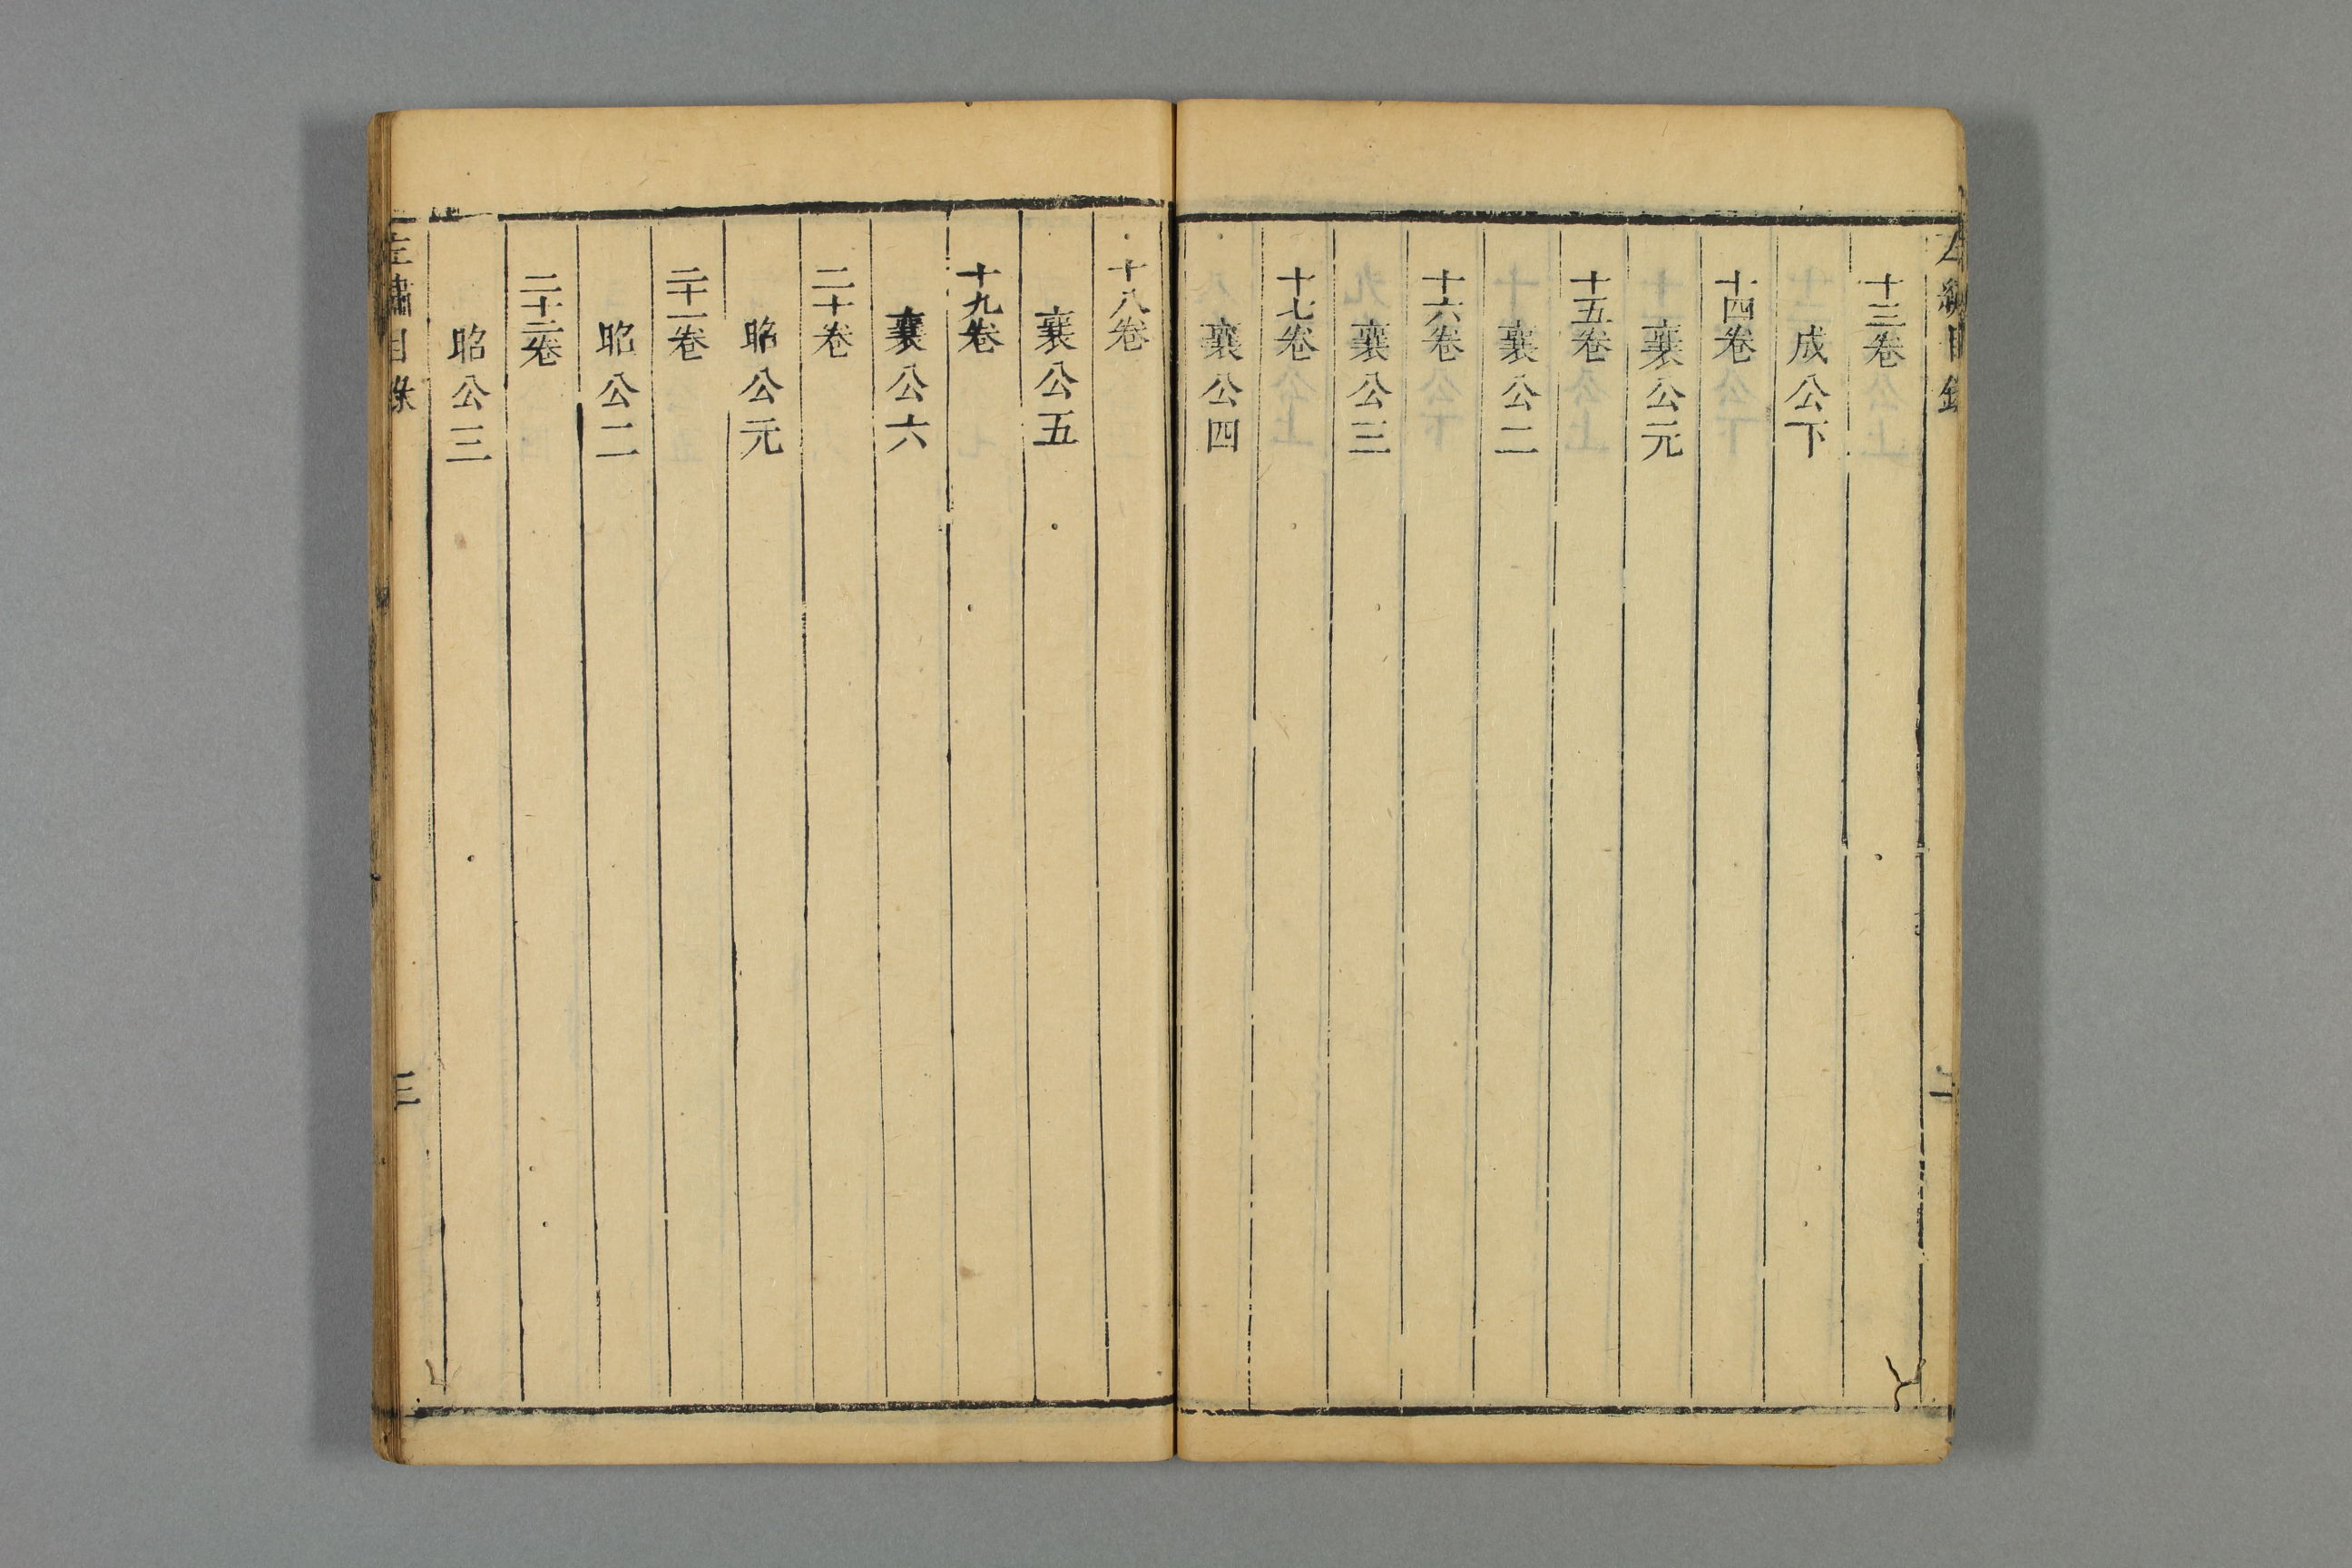 十三卷
成公下
十四卷
襄公元
十五卷
襄公二
十六卷
襄公三
十七卷
襄公四
十八卷
襄公五
十九卷
襄公六
二十卷
昭公元
二十一卷
昭公二
二十二卷
昭公三
目錄
三